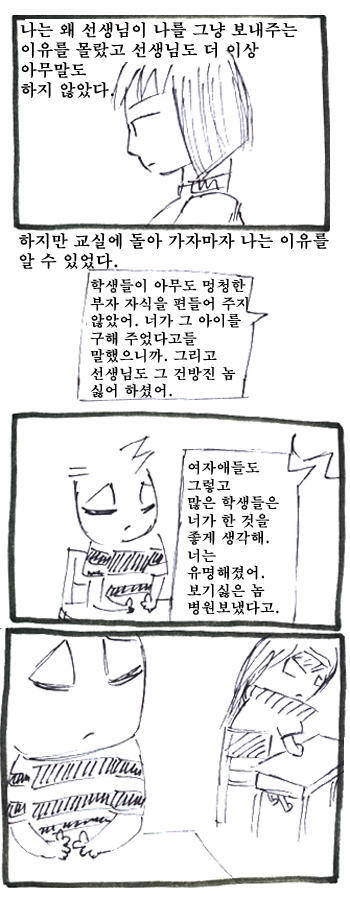 나는 왜 선생님이 나를 그냥 보내주는
이유를 몰랐고 선생님도 더 이상
아무말도
하지 않았다.
하지만 교실에 돌아 가자마자 나는 이유를
알 수 있었다.
학생들이 아무도 멍청한
부자 자식을 편들어 주지
않았어. 너가 그 아이를
구해 주었다고들
말했으니까. 그리고
선생님도 그 건방진 놈
싫어 하셨어.
여자애들도
그렇고
많은 학생들은
너가 한 것을
좋게 생각해.
너는
유명해졌어.
보기싫은 놈
병원보냈다고.